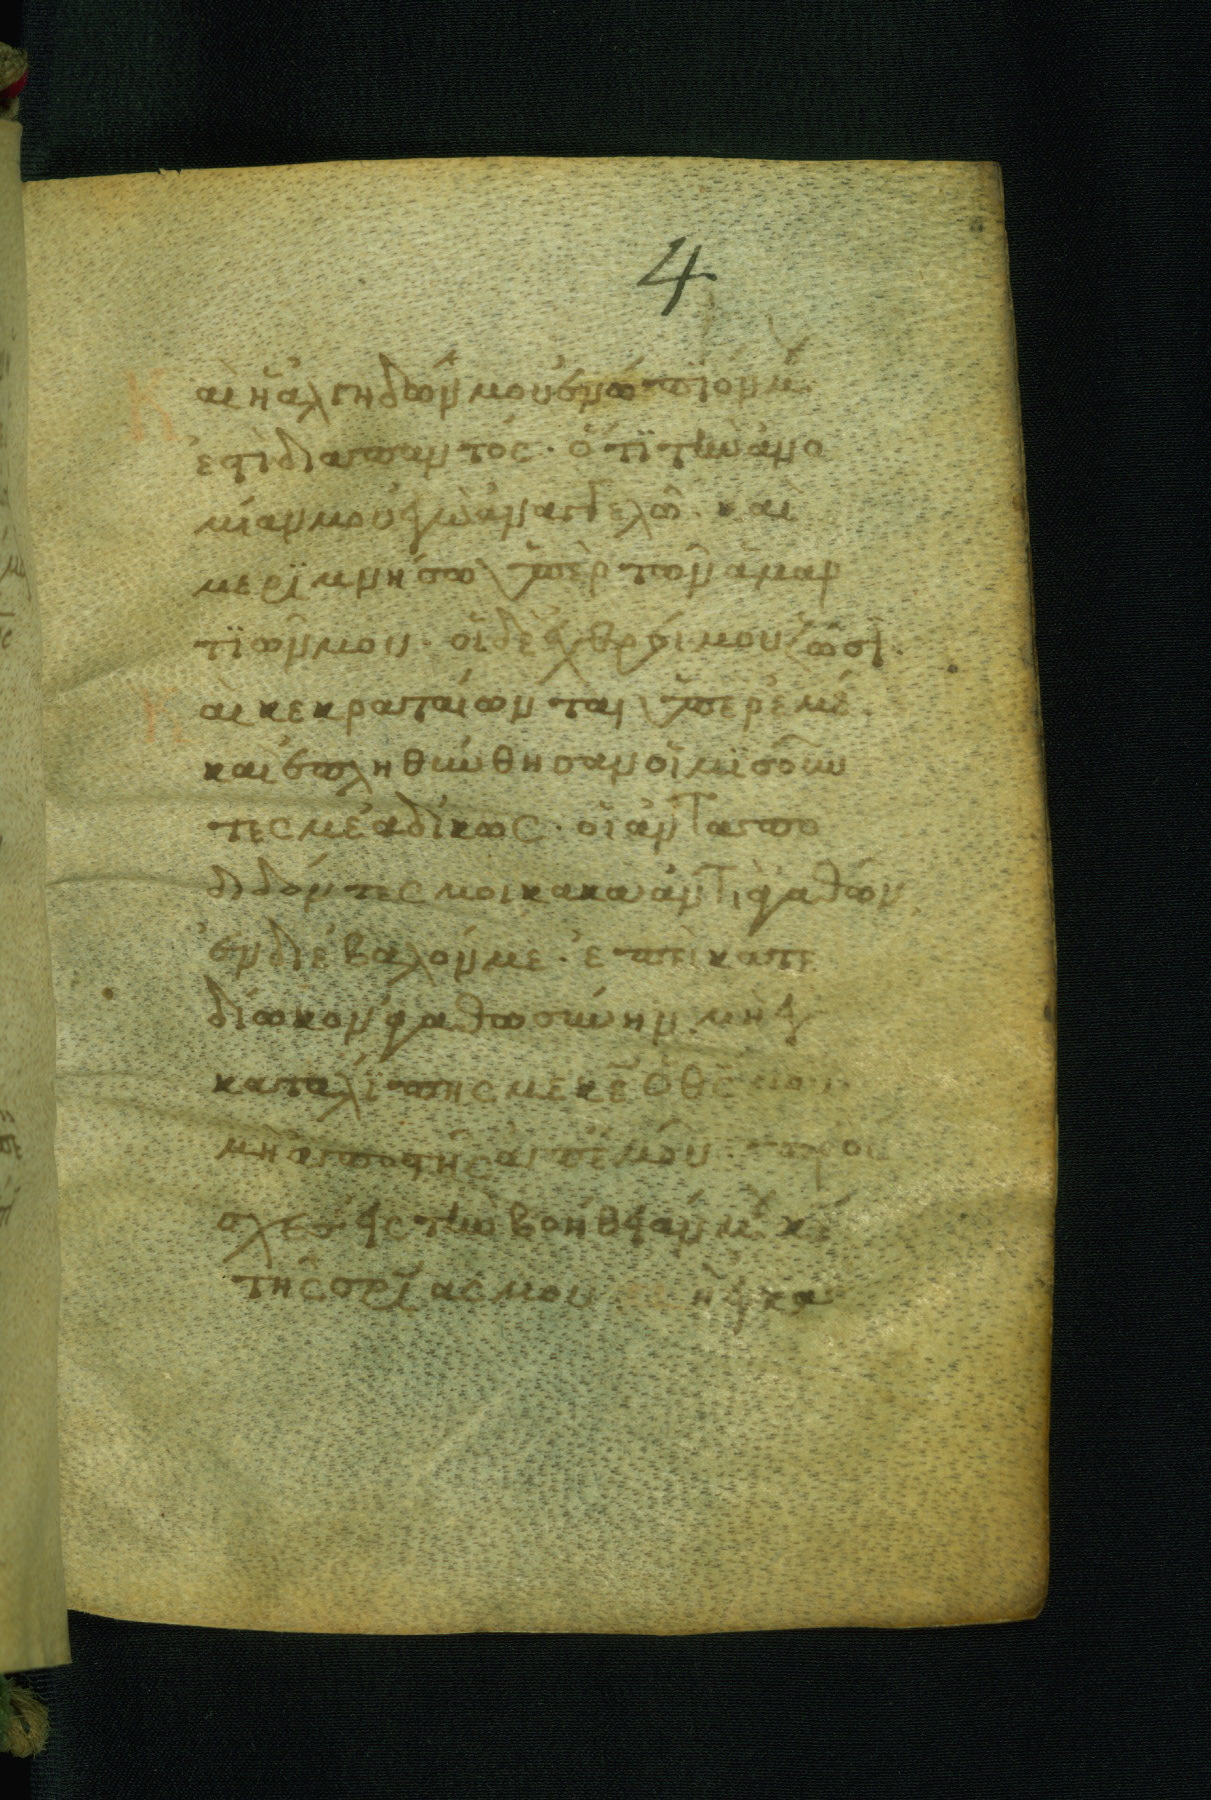 4
Καὶ ἡ ἀλγηδών μου ἐνώπϊόν μȣ
ἐστὶ διαπαντός · ὅτϊ τὴν ἀνο
μίαν μου ἐγὼ ἀναγγελῶ · καὶ
μερϊμνήσω ὑπὲρ τῶν ἁμαρ
τϊῶν μου · οἱ δὲ ἐχθροί μου ζῶσϊ ·
Καὶ κεκραταίωνται ὑπερ ἐμέ ·
καὶ ἐπληθύνθησαν οἱ μϊσοῦν
τες με ἀδίκως · οἱ ἀνταπο
διδόντες μοι κακα ἀντὶ ἀγαθῶν
ἐνδιέβαλόν με · ἐπεὶ κατε
δίωκον ἀγαθωσύνην · μὴ ἐγ
καταλίπης με κε̅ ὁ θς̅ μου ·
μὴ ἀποστῆς ἀπ' ἐμοῦ · προ
σχες εἰς τὴν βοήθειάν μȣ κε̅
τῆς σρι̅ας μου